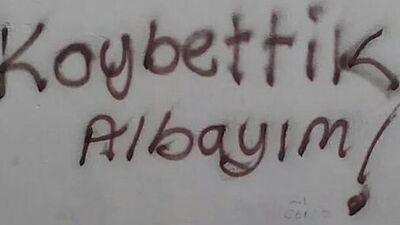 Koybettik
Albayım!